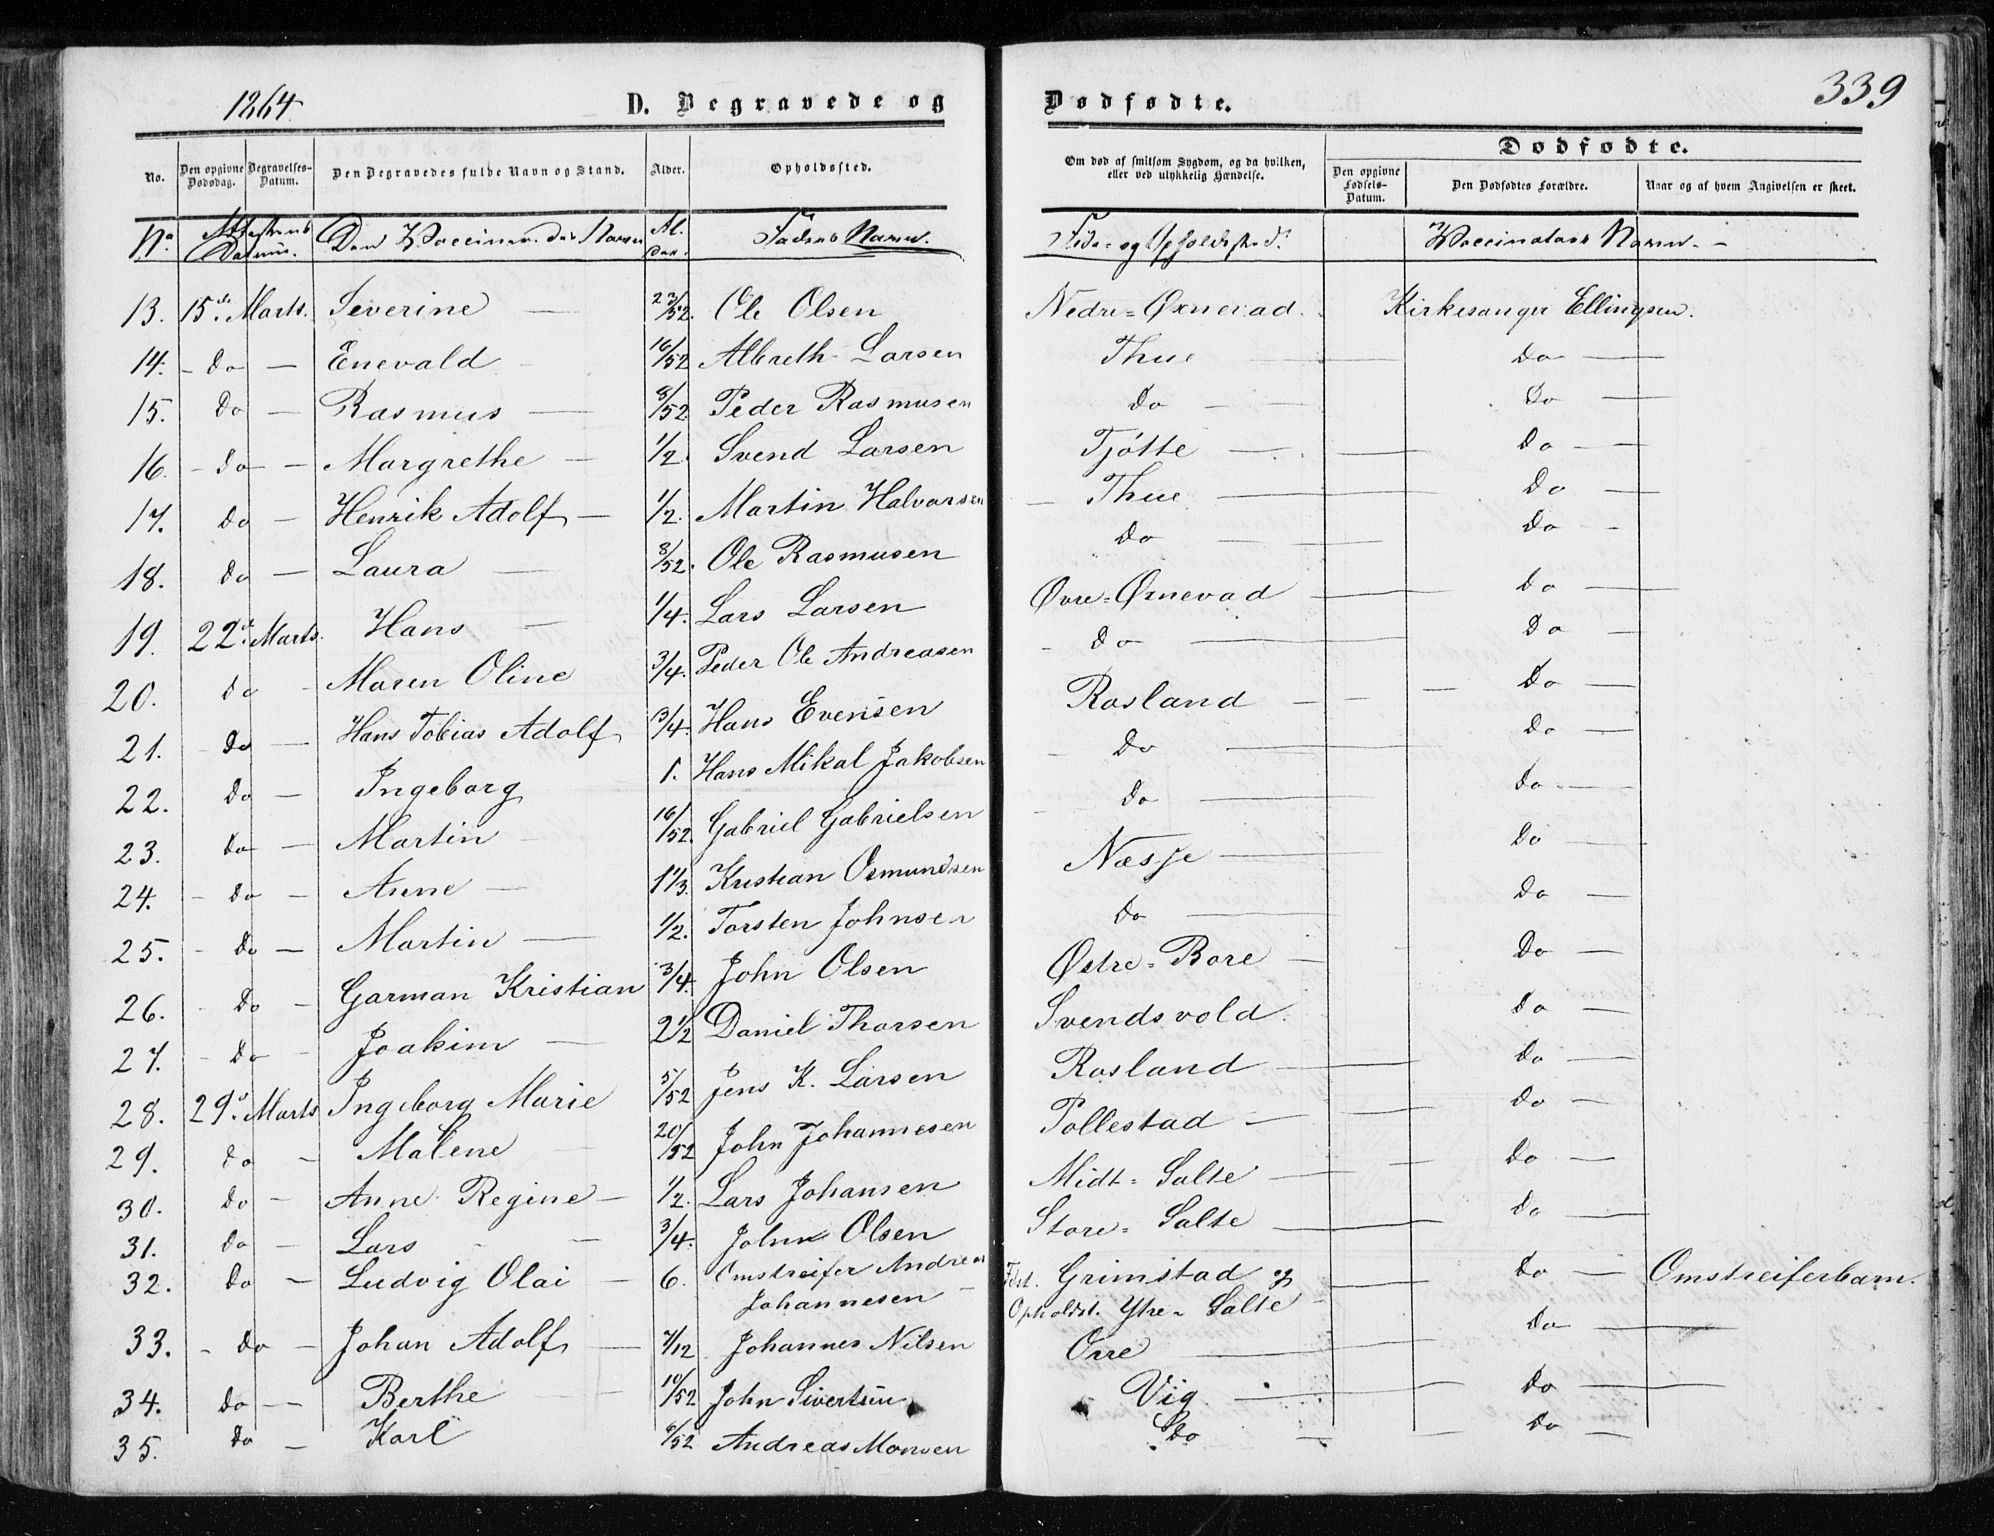 1864.
D. Begravede og
Dødfødte.
339
No.
Den opgivne Dødsdag.
Begravelses-Datum.
Den Begravedes fulde Navn og Stand.
Alder.
Opholdssted.
Om død af smitsom Sygdom, og da hvilken,
eller ved ulykkelig Hændelse.
Dødfødte.
Den opgivne Fødsels-Datum.
Den Dødfødtes Forældre.
Naar og af hvem Angivelsen er skeet.
No Attestens Datum. Den Vaccineredes Navn Alder. Faderens Navn. Føde- og Opholdssted. Vaccinateurs Navn. -
13. 15de Marts. Severine — 23/52. Ole Olsen Nedre-Øxnevad. Kirkesanger Ellingsen.
14. - do — Enevald - 16/52 Albreth Larsen Thue — do —
15. Do — Rasmus — 8/52 Peder Rasmusen do — do —
16. - do — Margrethe — 1/2. Svend Larsen Tjøtte — do —
17. do — Henrik Adolf — 1/2. Martin Halvorsen — Thue — do —
18. do — Laura — 8/52. Ole Rasmusen do — do -
19. 22de Marts. Hans — 1/4. Lars Larsen Øvre-Øxnevad — do —
20. do - Maren Oline 3/4. Peder Ole Andreasen - do — do —
21. - do — Hans Tobias Adolf 3/4. Hans Evensen Rosland — do —
22. do — Ingeborg 1. Hans Mikal Jakobsen - do — do —
23. do — Martin — 16/52. Gabriel Gabrielsen do — do —
24. - do — Anne — 1 1/3. Kristian Osmundsen Næsje — do —
25. - do — Martin — 1/2. Torsten Johnsen do — do —
26. - do — Garman Kristian 3/4. John Olsen Østre-Bore — do —
27. - do - Joakim — 2 1/2 Daniel Thorsen Svendsvold. do —
28. 29de Marts Ingeborg Marie 5/52 Jens K. Larsen Rosland — do —
29. do — Malene — 20/52 John Johannesen Tollestad — do —
30. do — Anne Regine — 1/2. Lars Johansen Midt-Salte — do —
31. do — Lars — 3/4. John Olsen Store-Salte — do —
32. do — Ludvig Olai — 6. Omstreifer Andreas Johannesen - Fdst. Grimstad og Opholdst. Ytre-Salte do — Omstreiferbarn.
33. - do — Johan Adolf — 7/12 Johannes Nilsen Orre — do —
34. do — Berthe — 10/52 John Sivertsen Vig — do —
35. do — Karl 8/52 Andreas Monsen do — do —